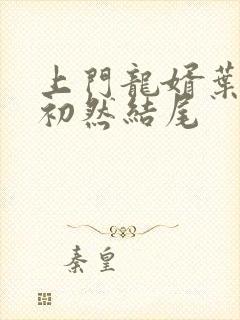 上門龍婿葉
初然結尾
秦皇